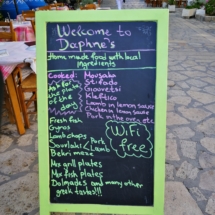 Welcome to
Daphne's
Home made food with local
ingredients
Cooked: Moussaka
Ask for the plate of the day
Stifado
Giouvetsi
Kleftico
Lamb in lemon sauce
Chicken in lemon sauce
Pork in the oven etc
Fresh fish
Gyros
Lamb chops
Souvlaki Pork Lamb
Bekri meze
WiFi
free
Mix grill plates
Mix fish plates
Dolmades and many other
greek tastes!!!